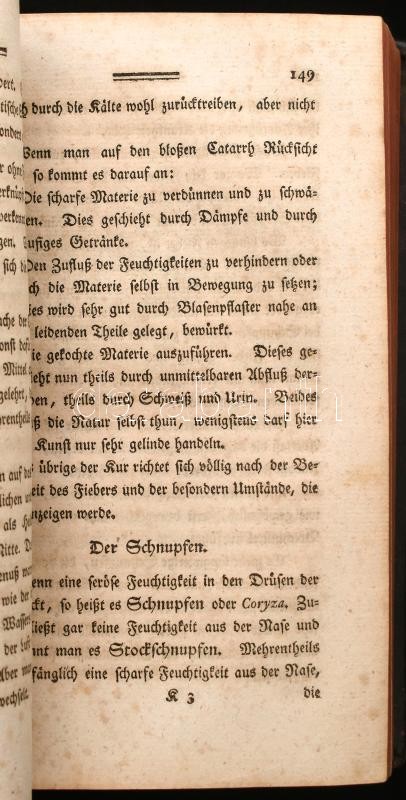 149
durch die Kälte wohl zurücktreiben, aber nicht
Wenn man auf den bloßen Catarrh Rücksicht
so kommt es darauf an:
Die scharfe Materie zu verdünnen und zu schwä-
en. Dies geschieht durch Dämpfe und durch
ufiges Getränke.
Den Zufluß der Feuchtigkeiten zu verhindern oder
ch die Materie selbst in Bewegung zu setzen;
ies wird sehr gut durch Blasenpflaster nahe an
leidenden Theile gelegt, bewürkt.
ie gekochte Materie auszuführen. Dieses ge-
ieht nun theils durch unmittelbaren Abfluß der-
ben, theils durch Schweiß und Urin. Beides
ß die Natur selbst thun, wenigstens darf hier
Kunst nur sehr gelinde handeln.
übrige der Kur richtet sich völlig nach der Be-
eit des Fiebers und der besondern Umstände, die
anzeigen werde.
Der Schnupfen.
enn eine seröse Feuchtigkeit in den Drüsen der
ckt, so heißt es Schnupfen oder Coryza. Zu-
ließt gar keine Feuchtigkeit aus der Nase und
nnt man es Stockschnupfen. Mehrentheils
fänglich eine scharfe Feuchtigkeit aus der Nase,
K 3 die